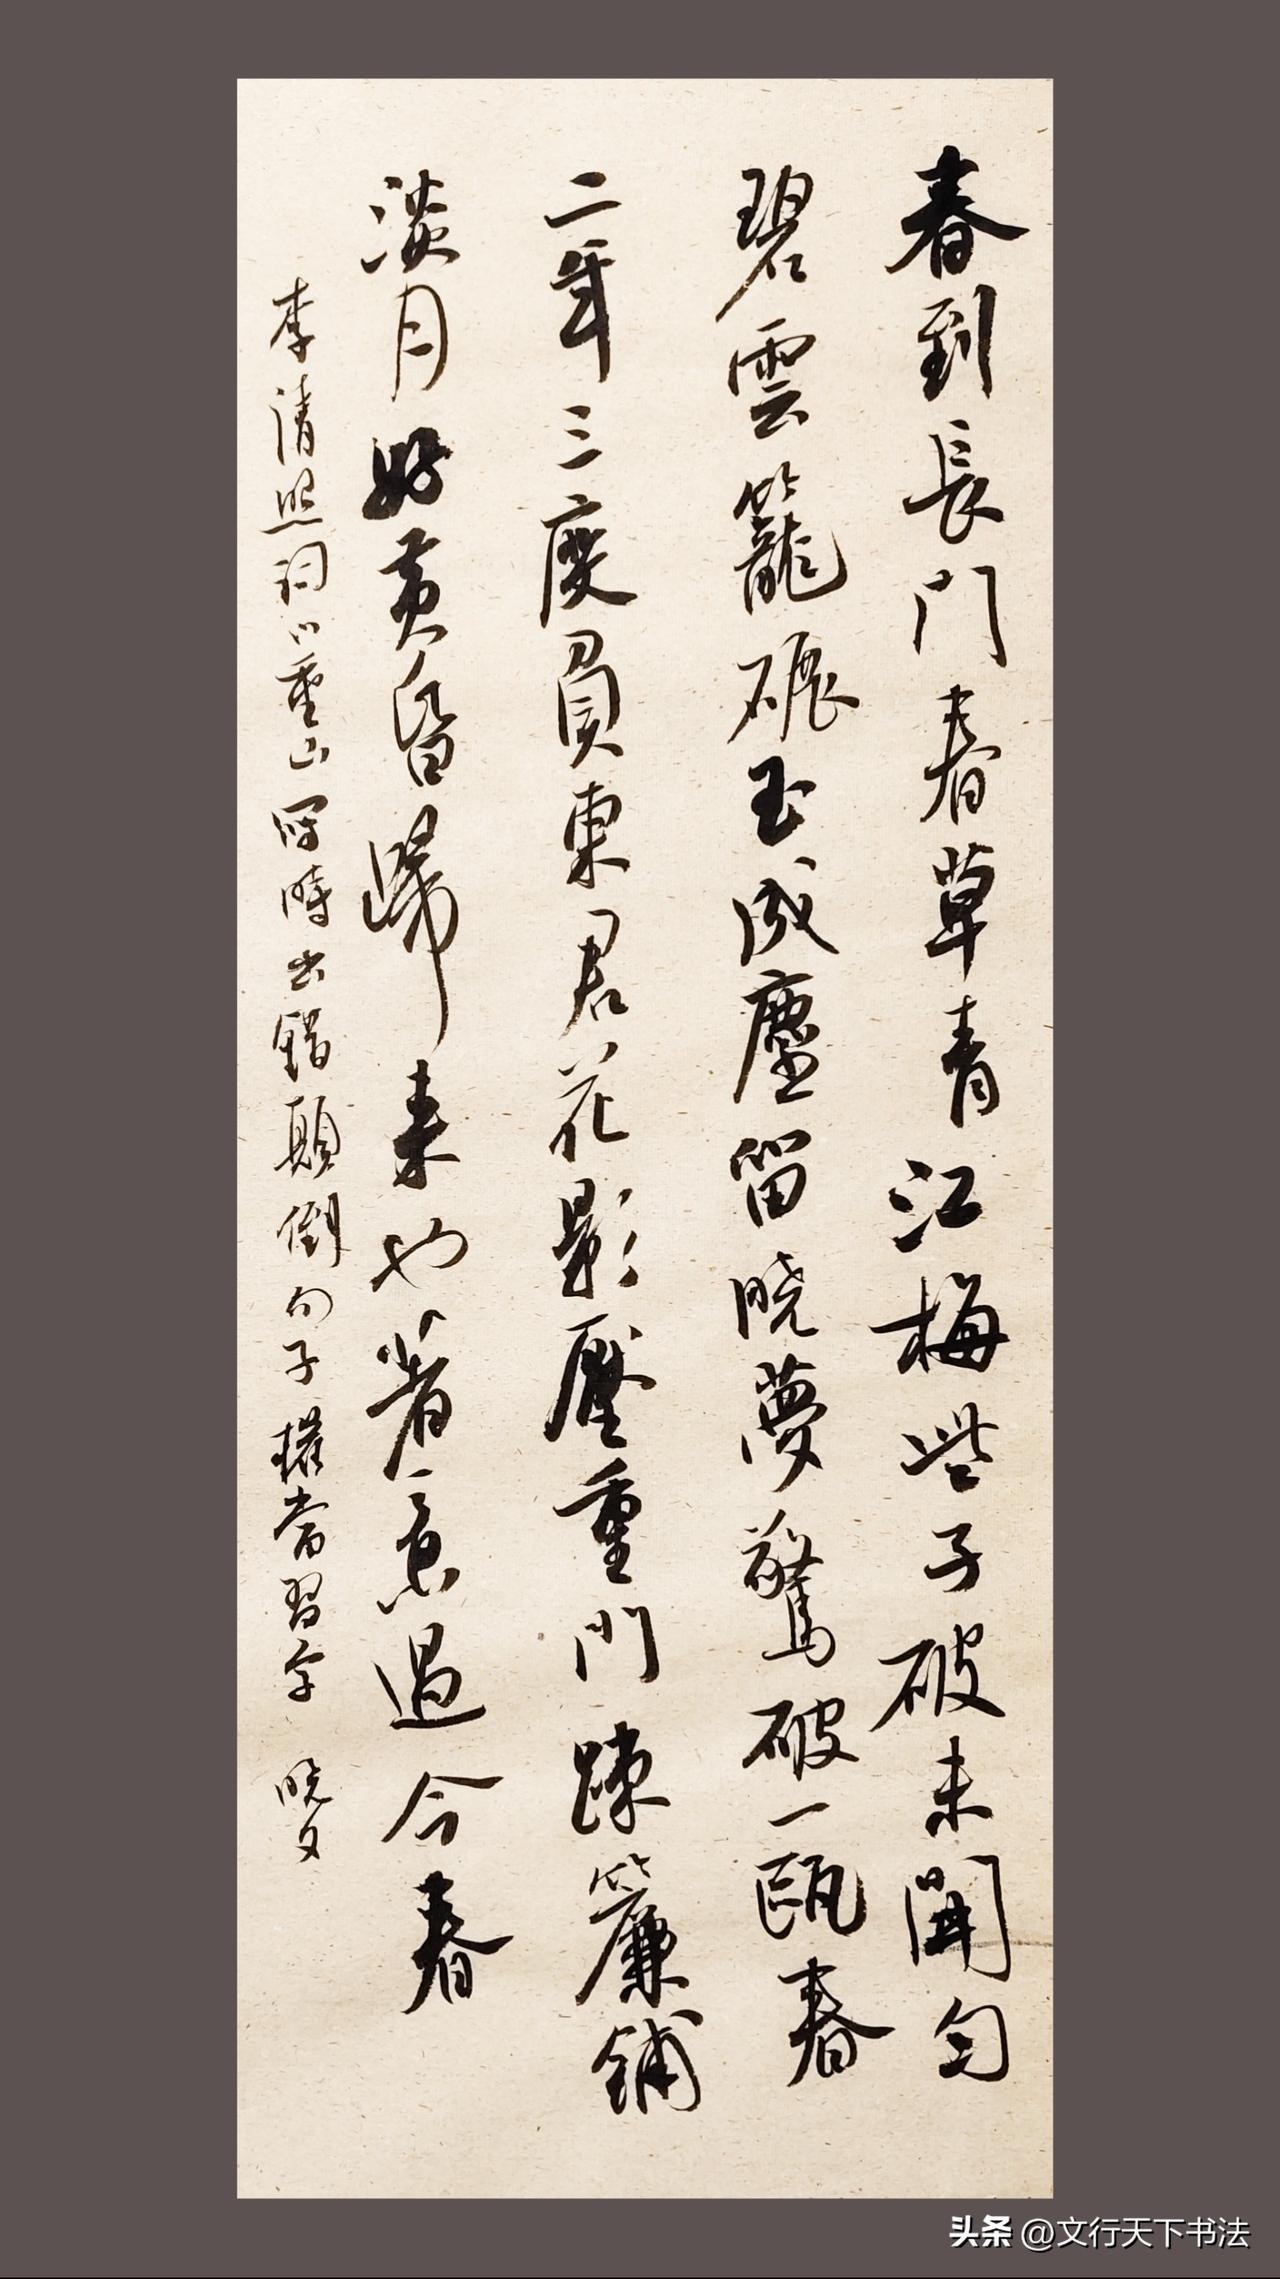 春到長門春草青江梅些子破未開勻
碧雲籠碾玉成塵留曉夢驚破一甌春
二年三度負東君花影壓重門疎簾鋪
淡月好黃昏歸來也著意過今春
李清照词小重山寫時出錯顛倒句子權當習字 晓文
头条 @文行天下书法